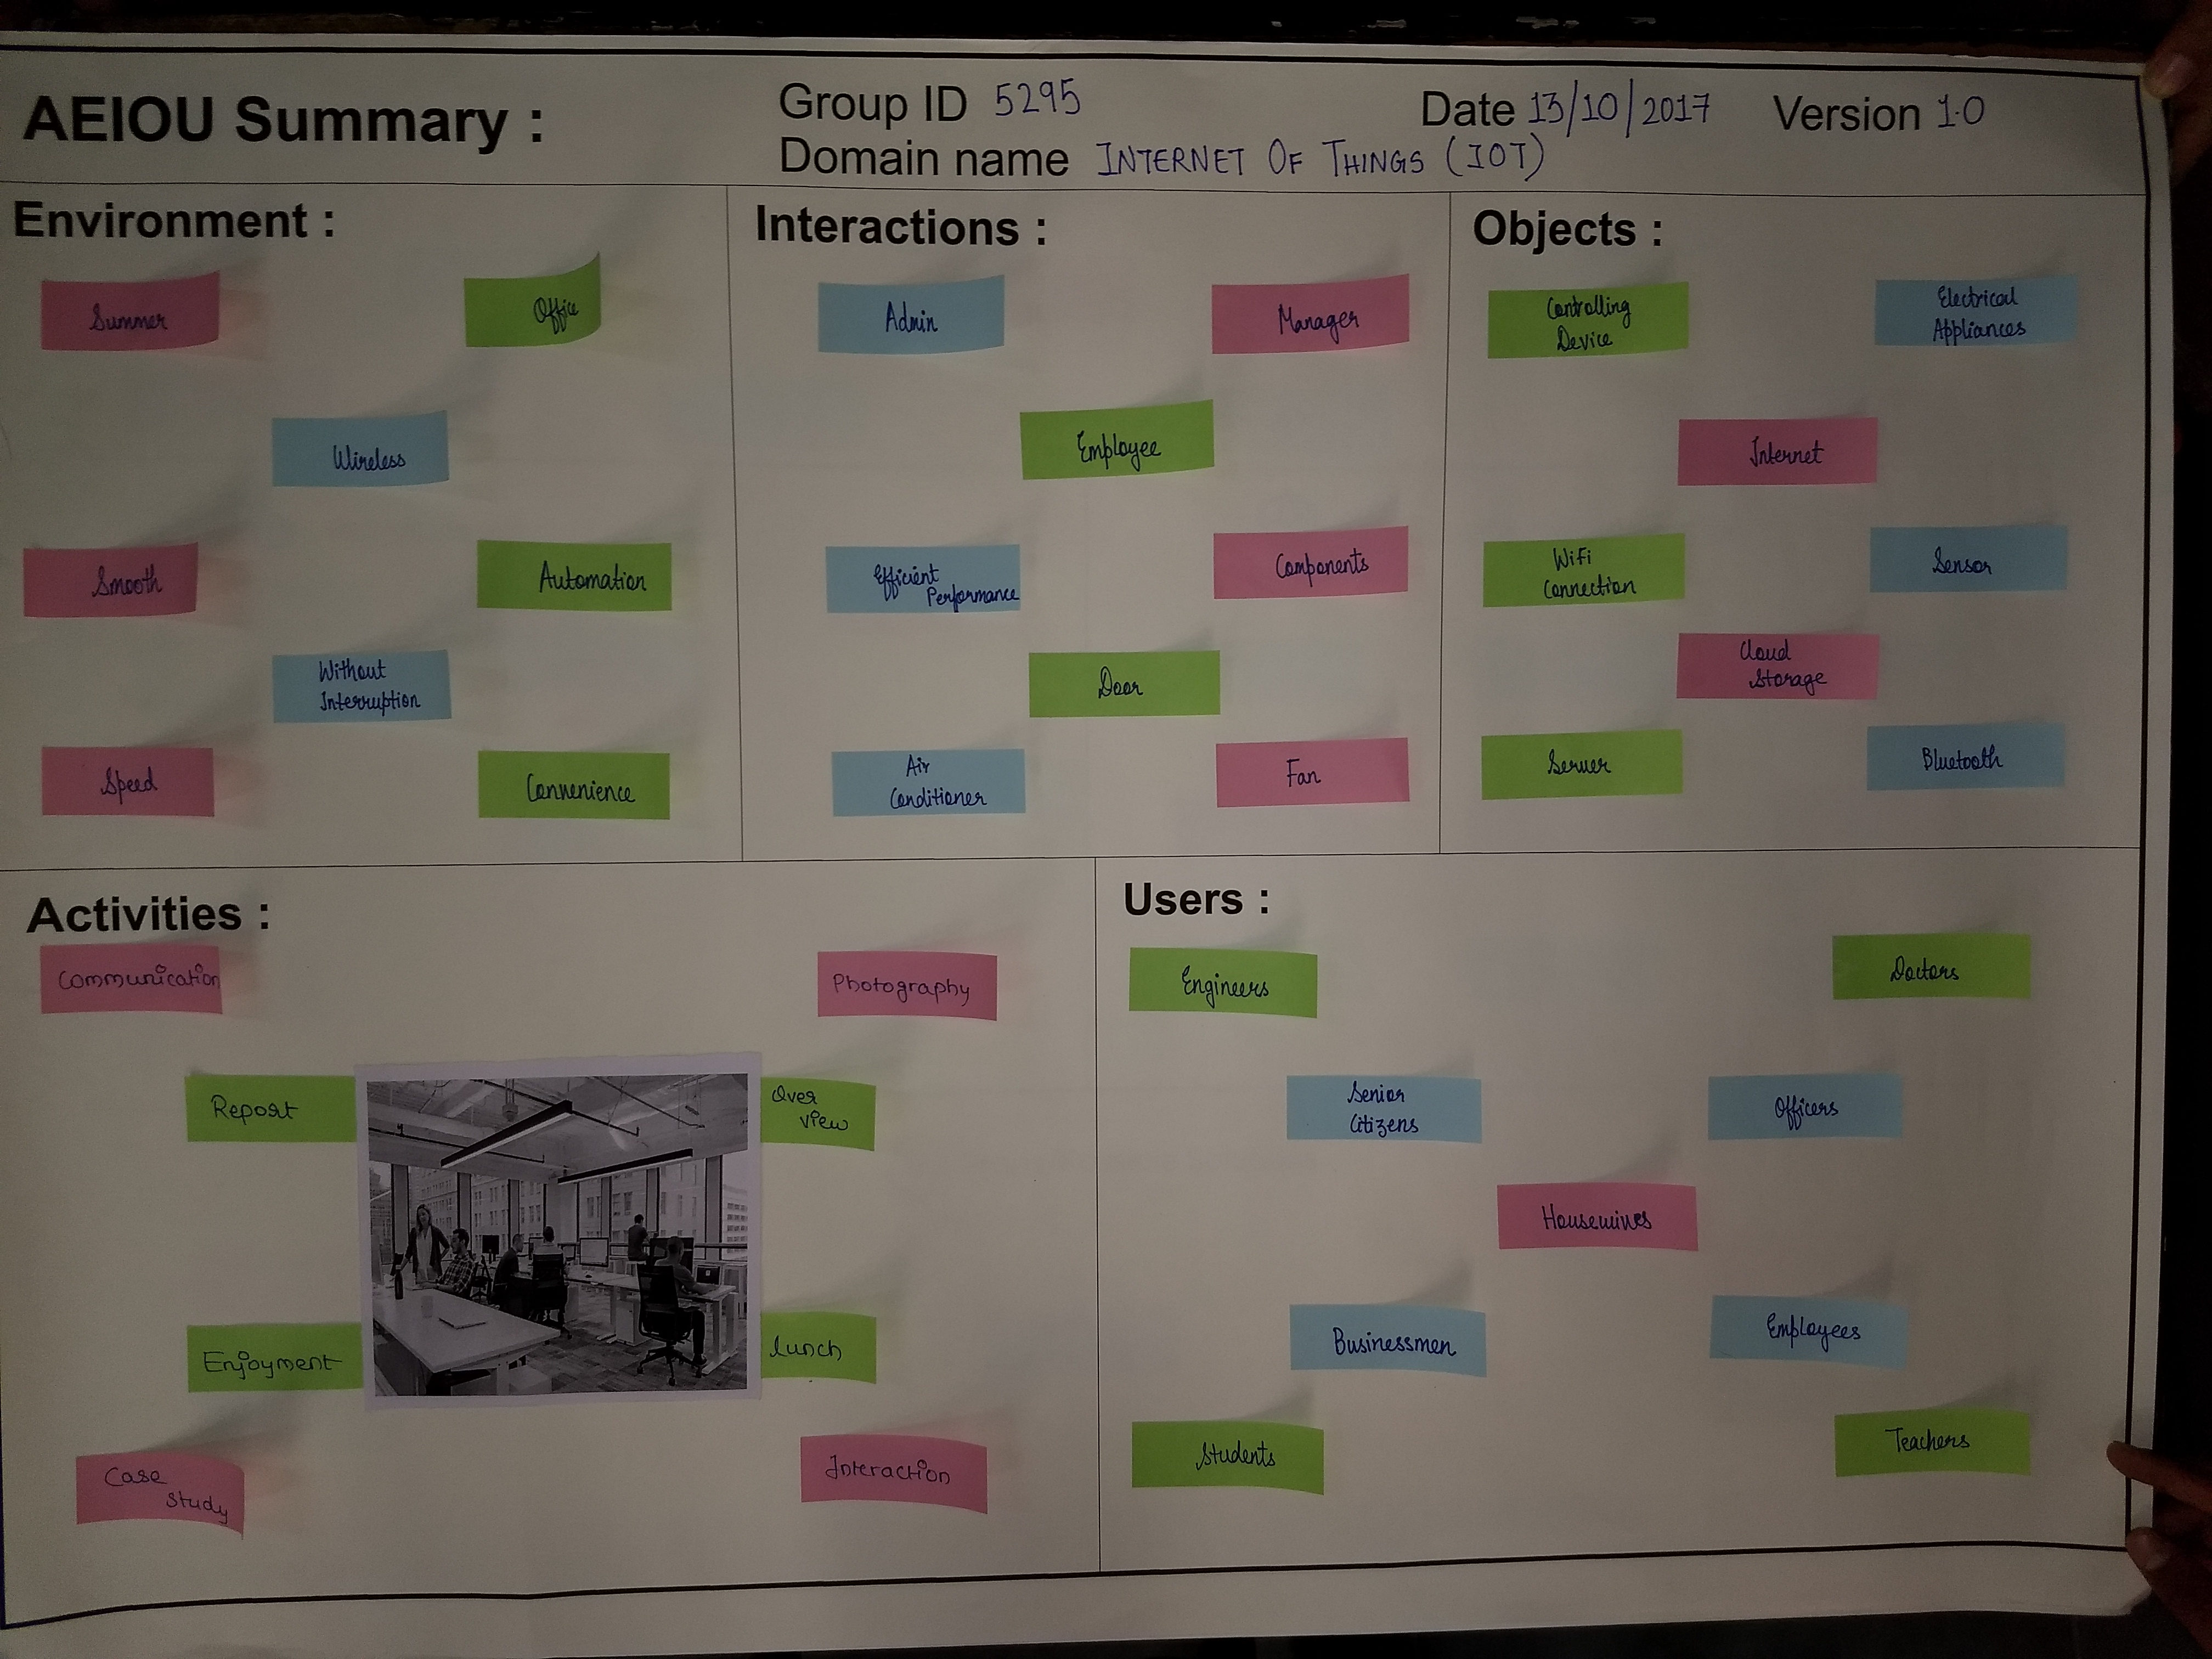 AEIOU Summary :
Group ID 5295
Date 13/10/2017
Version 1.0
Domain name INTERNET OF THINGS (IOT)
Environment :
Summer
Office
Wireless
Smooth
Automation
Without
Interruption
Speed
Convenience
Interactions :
Admin
Manager
Employee
Efficient
Performance
Components
Door
Air
Conditioner
Fan
Objects :
Controlling
Device
Electrical
Appliances
Internet
WiFi
Connection
Sensor
Cloud
Storage
Server
Bluetooth
Activities :
Communication
Photography
Report
Over
view
Enjoyment
Lunch
Case
Study
Interaction
Users :
Engineers
Doctors
Senior
Citizens
Officers
Housewives
Businessmen
Employees
Students
Teachers